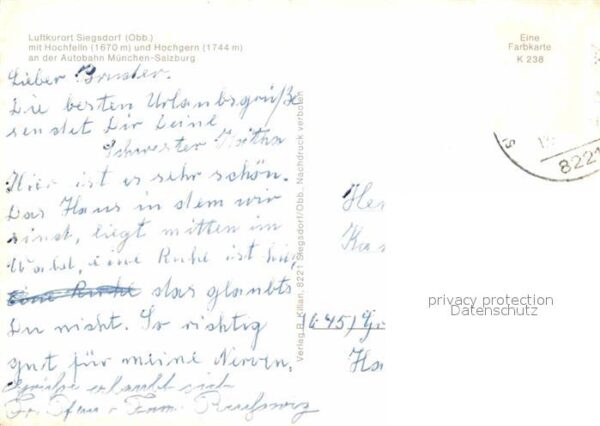 Luftkurort Siegsdorf (Obb.)
mit Hochfelln (1670 m) und Hochgern (1744 m)
an der Autobahn München-Salzburg
Eine
Farbkarte
K 238
Lieber Bruder.
Die besten Urlaubsgrüße
sendet Dir Deine
Schwester
Hier ist es sehr schön.
Das Haus in dem wir
sind, liegt mitten im
Wald, eine Ruhe ist hie,
eine Ruhe das glaubts
Du nicht. So richtig
gut für meine Nerven.
Grüße erlaubt sich
Fr. u. Fam.
Verlag R. Kilian, 8221 Siegsdorf/Obb., Nachdruck verboten
8221
privacy protection
Datenschutz